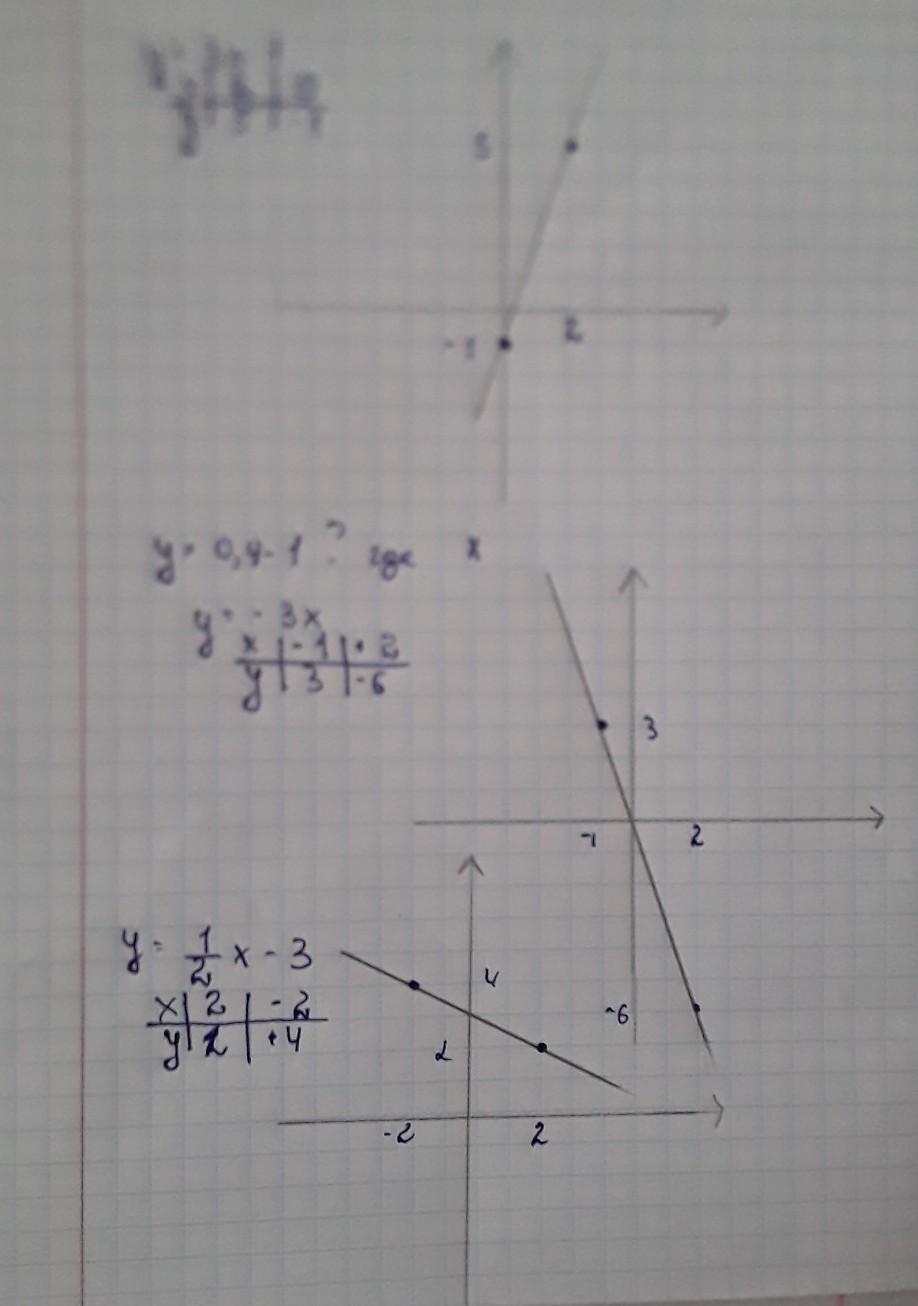 5
-1 2
y = 0,4 - 1 ? где x
y = - 3x
x | - 1 | + 2
y | 3 | -6
3
-1 2
-6
y = 1/2 x - 3
x | 2 | -2
y | 2 | +4
4
2
-2 2